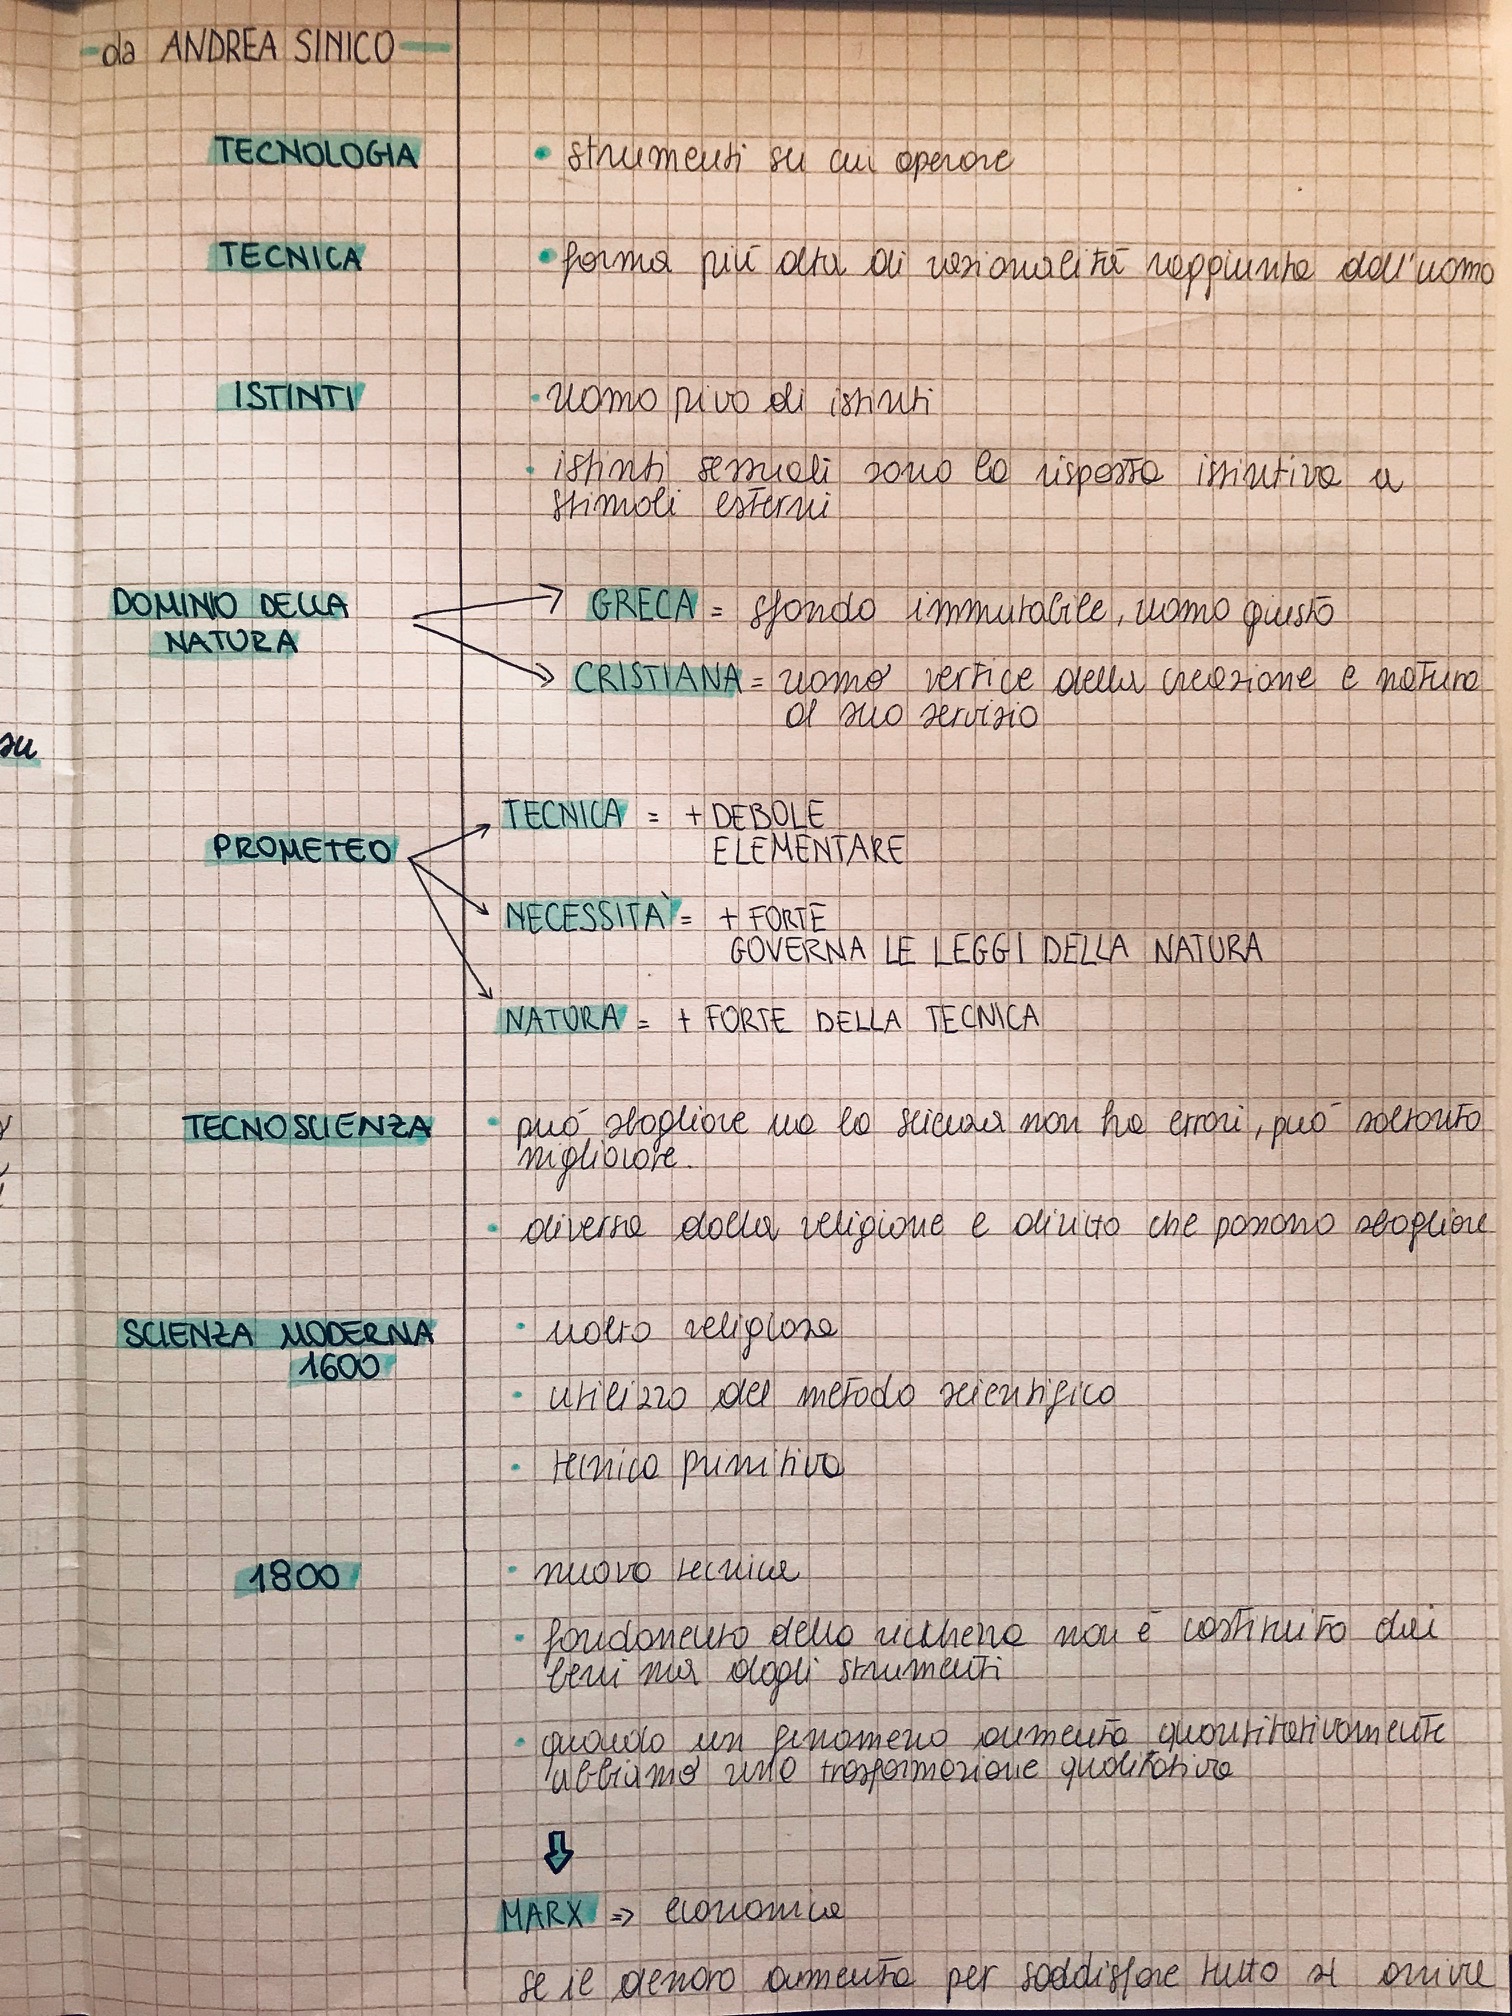 da ANDREA SINICO
TECNOLOGIA
• strumenti su cui operare
TECNICA
• forma più alta di razionalità raggiunta dall'uomo
ISTINTI
• uomo pivo di istinti
• istinti sessuali sono la risposta istintiva a
stimoli esterni
DOMINIO DELLA
NATURA
GRECA = sfondo immutabile, uomo giusto
CRISTIANA = uomo vertice della creazione e natura
al suo servizio
su
PROMETEO
TECNICA = + DEBOLE
ELEMENTARE
NECESSITÀ = + FORTE
GOVERNA LE LEGGI DELLA NATURA
NATURA = + FORTE DELLA TECNICA
TECNOSCIENZA
• può sbagliare ma la scienza non ha errori, può soltanto
migliorare.
• diversa dalla religione e diritto che possono sbagliare
SCIENZA MODERNA
1600
• molto religiosa
• utilizzo del metodo scientifico
• tecnica primitiva
1800
• nuova tecnica
• fondamento della ricchezza non è costituito dai
beni ma dagli strumenti
• quando un fenomeno aumenta quantitativamente
abbiamo una trasformazione qualitativa
MARX => economica
se il denaro aumenta per soddisfare tutto si arriva